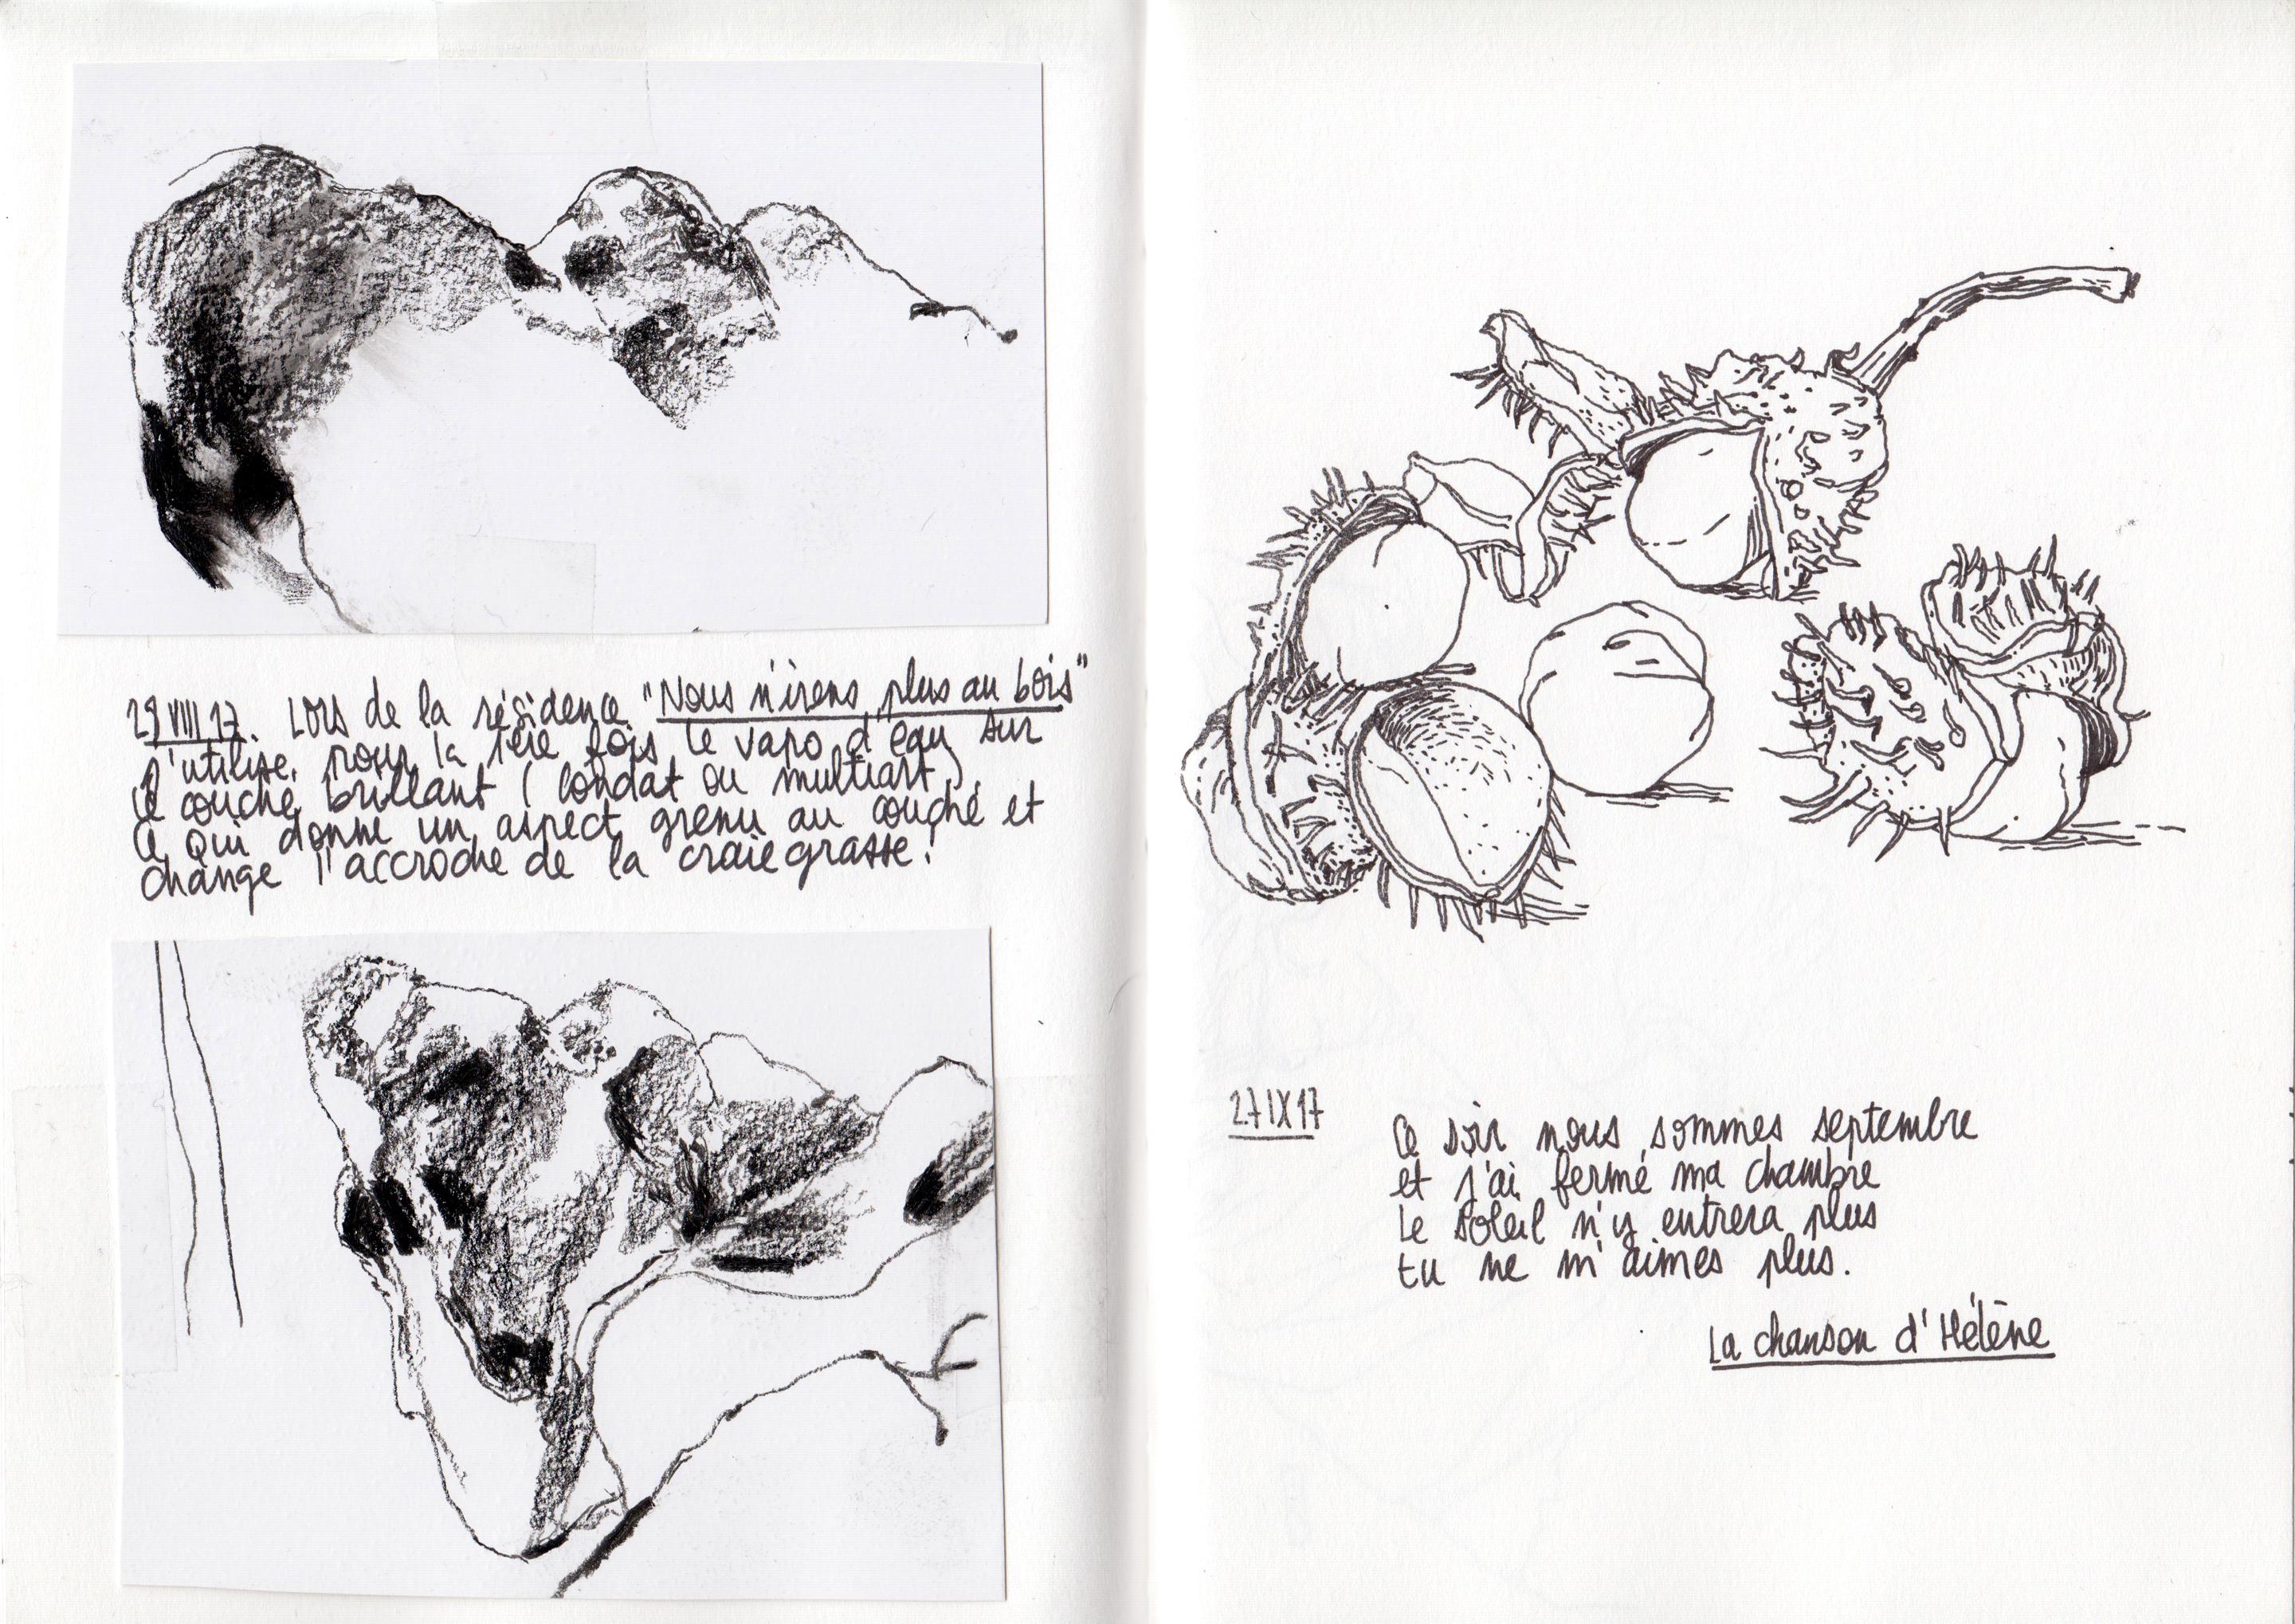 29 VIII 17. Lors de la résidence "Nous n'irons plus au bois"
j'utilise pour la 1ère fois le vapo d'eau sur
le couché brillant (Condat ou multiart)
ce qui donne un aspect grenu au couché et
change l'accroche de la craie grasse!
27 IX 17
Ce soir nous sommes septembre
et j'ai fermé ma chambre
le soleil n'y entrera plus
tu ne m'aimes plus.
La chanson d'Hélène